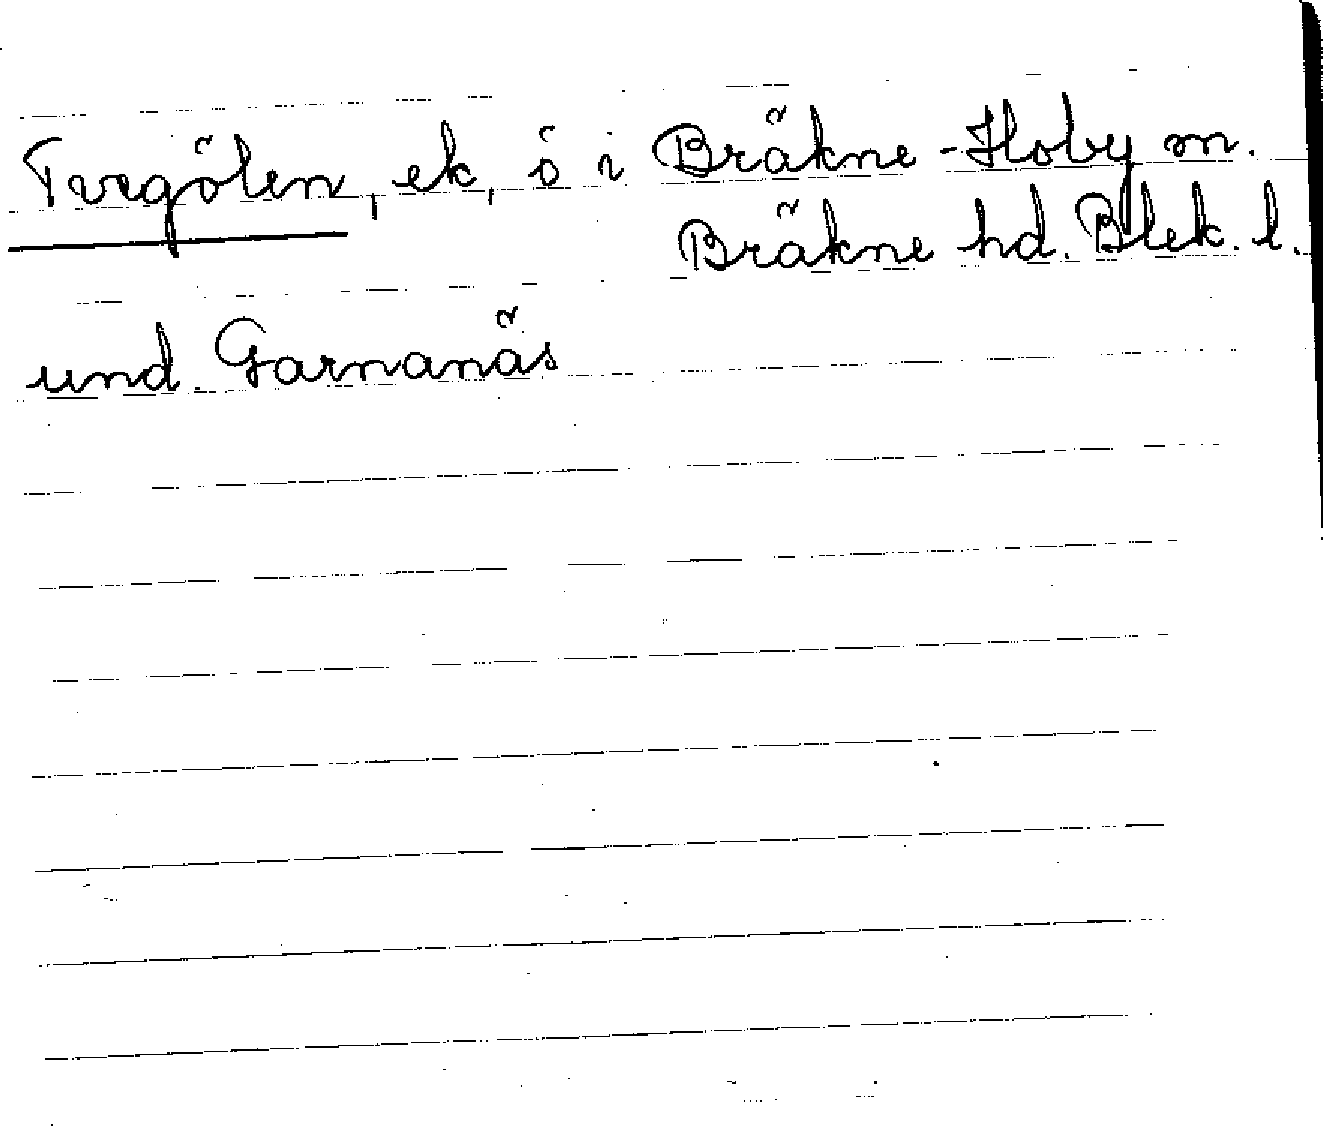 Tvegölen, ek, ö i Bräkne-Hoby sn.
Bräkne hd. Blek. l.
und. Garnanäs